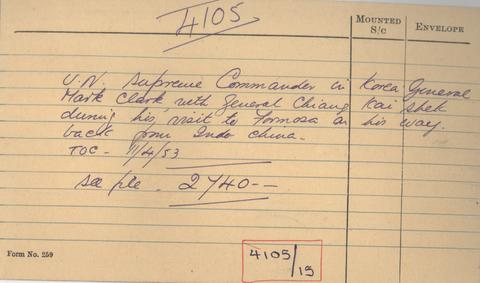 4105
MOUNTED S/C
ENVELOPE
U.N. Supreme Commander in Korea General
Mark Clark with General Chiang Kai Shek
during his visit to Formosa on his way
back from Indo China.
TOC - 11/4/53
see ple. 2740 --
Form No. 259
4105/15